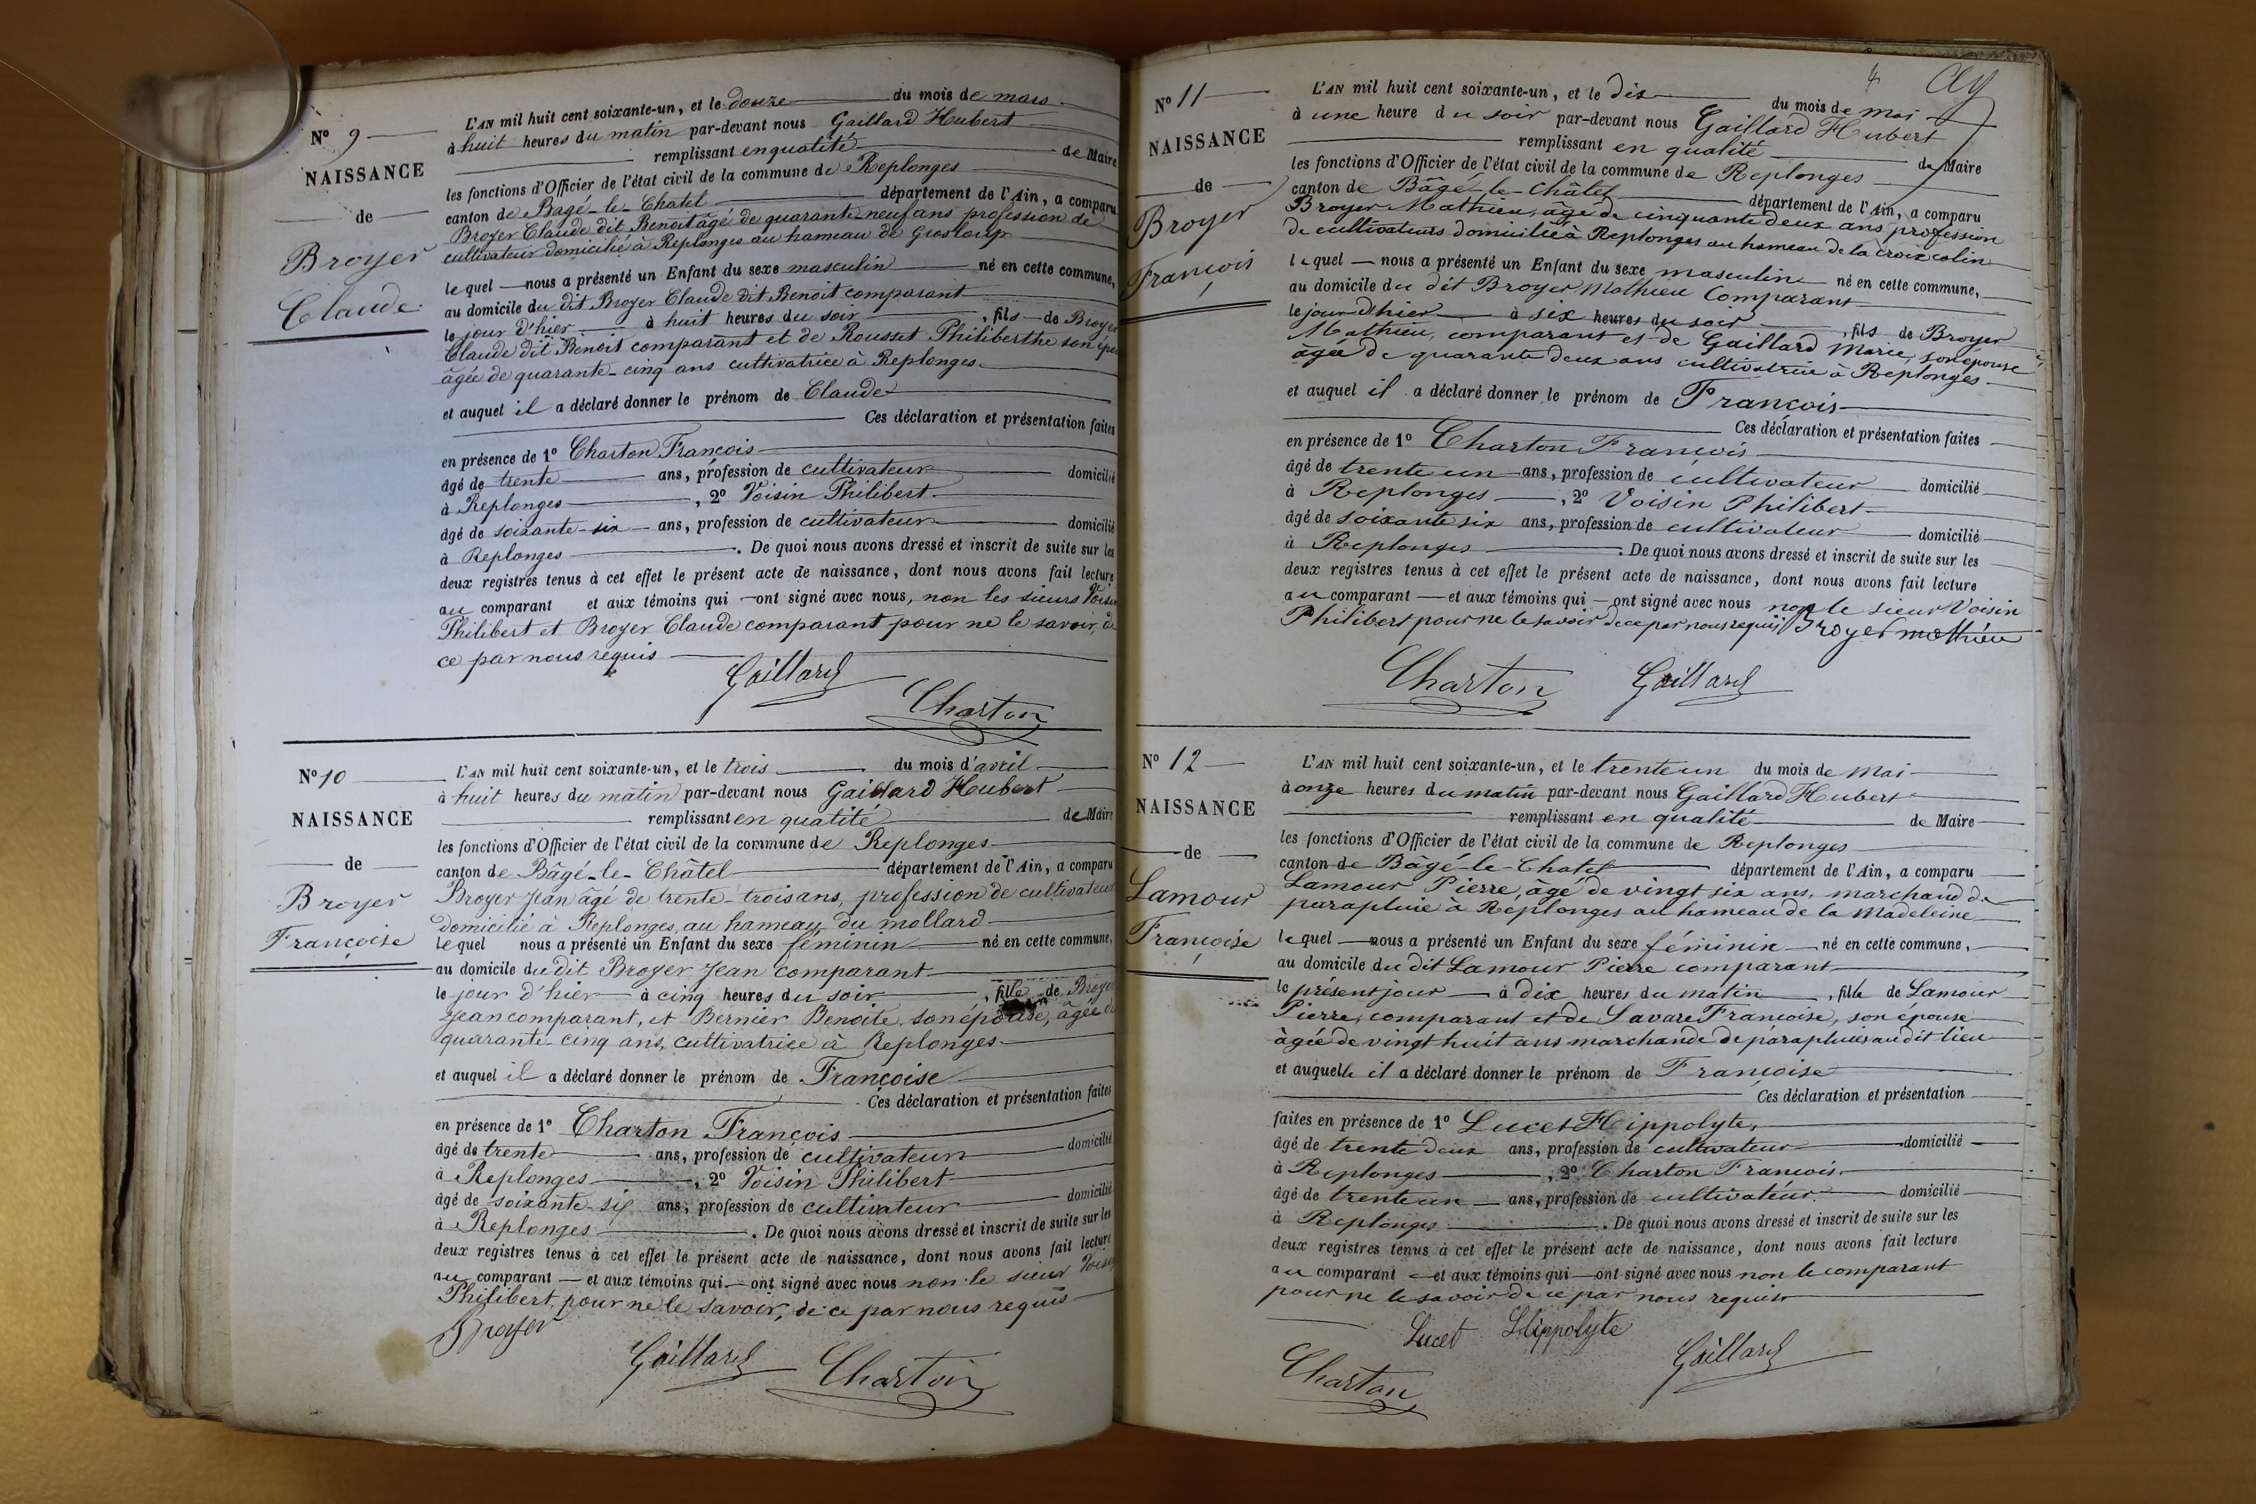 N° 9
NAISSANCE
de
Broyer
Claude
L'AN mil huit cent soixante-un, et le douze du mois de mars
à huit heures du matin par-devant nous Gaillard Hubert
remplissant en qualité de Maire
les fonctions d'Officier de l'état civil de la commune de Replonges
canton de Bagé-le-Chatel département de l'Ain, a comparu
Broyer Claude dit Benoit âgé de quarante-neuf ans profession de
cultivateur domicilié à Replonges au hameau de Grosloup
lequel nous a présenté un Enfant du sexe masculin né en cette commune,
au domicile du dit Broyer Claude dit Benoit comparant
le jour d'hier à huit heures du soir, fils de Broyer
Claude dit Benoit comparant et de Rousset Philiberthe son épouse
âgée de quarante-cinq ans cultivatrice à Replonges
et auquel il a déclaré donner le prénom de Claude
Ces déclaration et présentation faites
en présence de 1° Charton François
âgé de trente ans, profession de cultivateur domicilié
à Replonges, 2° Voisin Philibert
âgé de soixante-six ans, profession de cultivateur domicilié
à Replonges. De quoi nous avons dressé et inscrit de suite sur les
deux registres tenus à cet effet le présent acte de naissance, dont nous avons fait lecture
au comparant et aux témoins qui ont signé avec nous, non les sieurs Voisin
Philibert et Broyer Claude comparant pour ne le savoir, de
ce par nous requis
Gaillard
Charton
N° 10
NAISSANCE
de
Broyer
Françoise
L'AN mil huit cent soixante-un, et le trois du mois d'avril
à huit heures du matin par-devant nous Gaillard Hubert
remplissant en qualité de Maire
les fonctions d'Officier de l'état civil de la commune de Replonges
canton de Bâgé-le-Châtel département de l'Ain, a comparu
Broyer Jean âgé de trente-trois ans, profession de cultivateur
domicilié à Replonges, au hameau du mollard
lequel nous a présenté un Enfant du sexe féminin né en cette commune,
au domicile du dit Broyer Jean comparant
le jour d'hier à cinq heures du soir, fille de Broyer
Jean comparant, et Bernier Benoite son épouse, âgée de
quarante-cinq ans, cultivatrice à Replonges
et auquel il a déclaré donner le prénom de Françoise
Ces déclaration et présentation faites
en présence de 1° Charton François
âgé de trente ans, profession de cultivateur domicilié
à Replonges, 2° Voisin Philibert
âgé de soixante-six ans, profession de cultivateur domicilié
à Replonges. De quoi nous avons dressé et inscrit de suite sur les
deux registres tenus à cet effet le présent acte de naissance, dont nous avons fait lecture
au comparant et aux témoins qui ont signé avec nous non le sieur Voisin
Philibert, pour ne le savoir, de ce par nous requis
Broyer
Gaillard
Charton
4
N° 11
NAISSANCE
de
Broyer
François
L'AN mil huit cent soixante-un, et le dix du mois de mai
à une heure du soir par-devant nous Gaillard Hubert
remplissant en qualité de Maire
les fonctions d'Officier de l'état civil de la commune de Replonges
canton de Bâgé-le-Châtel département de l'Ain, a comparu
Broyer Mathieu, âgé de cinquante deux ans profession
de cultivateurs domicilié à Replonges au hameau de la croix colin
lequel nous a présenté un Enfant du sexe masculin né en cette commune,
au domicile du dit Broyer Mathieu Comparant
le jour d'hier à six heures du soir, fils de Broyer
Mathieu, comparant et de Gaillard Marie, son épouse
âgée de quarante deux ans cultivatrice à Replonges
et auquel il a déclaré donner le prénom de François
Ces déclaration et présentation faites
en présence de 1° Charton François
âgé de trente un ans, profession de cultivateur domicilié
à Replonges, 2° Voisin Philibert
âgé de soixante six ans, profession de cultivateur domicilié
à Replonges. De quoi nous avons dressé et inscrit de suite sur les
deux registres tenus à cet effet le présent acte de naissance, dont nous avons fait lecture
au comparant et aux témoins qui ont signé avec nous non le sieur Voisin
Philibert pour ne le savoir de ce par nous requis Broyer mathieu
Charton Gaillard
N° 12
NAISSANCE
de
Lamour
Françoise
L'AN mil huit cent soixante-un, et le trente un du mois de mai
à onze heures du matin par-devant nous Gaillard Hubert
remplissant en qualité de Maire
les fonctions d'Officier de l'état civil de la commune de Replonges
canton de Bâgé-le-Chatel département de l'Ain, a comparu
Lamour Pierre, âgé de vingt six ans, marchand de
parapluie à Réplonges au hameau de la Madeleine
lequel nous a présenté un Enfant du sexe féminin né en cette commune,
au domicile du dit Lamour Pierre comparant
le présent jour à dix heures du matin, fille de Lamour
Pierre, comparant et de Lavare Francoise, son épouse
âgée de vingt huit ans marchande de parapluies au dit lieu
et auquelle il a déclaré donner le prénom de Françoise
Ces déclaration et présentation
faites en présence de 1° Lucet Hippolyte,
âgé de trente deux ans, profession de cultivateur domicilié
à Replonges, 2° Charton François
âgé de trente un ans, profession de cultivateur domicilié
à Replonges. De quoi nous avons dressé et inscrit de suite sur les
deux registres tenus à cet effet le présent acte de naissance, dont nous avons fait lecture
au comparant et aux témoins qui ont signé avec nous non le comparant
pour ne le savoir de ce par nous requis
Lucet Hippolyte
Gaillard
Charton